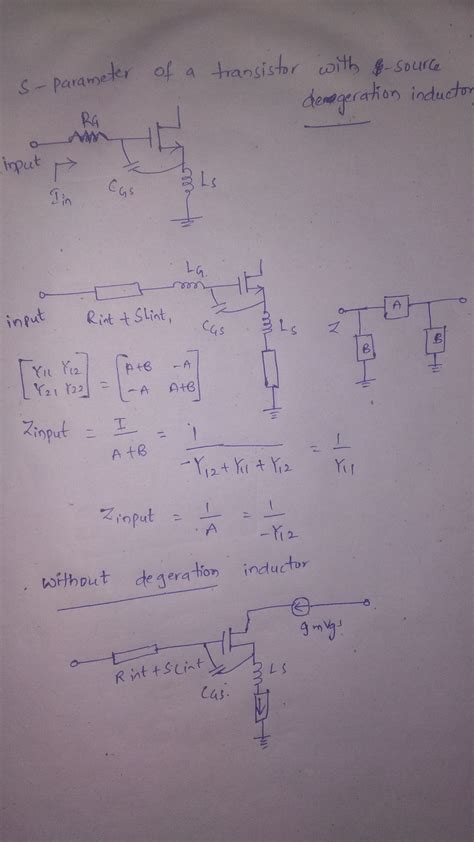 S-parameter of a transistor with s-source
degeration inductor
RG
input
Iin
CGS
LS
LG
input
Rint + SLint,
CGS
LS
Z
A
B
B
[Y11 Y12
Y21 Y22] = [A+B -A
-A A+B]
Zinput = I/(A+B) = 1/(-Y12+Y11+Y12) = 1/Y11
Zinput = 1/A = 1/-Y12
without degeration inductor
gmVgs
Rint + SLint
CGS.
LS